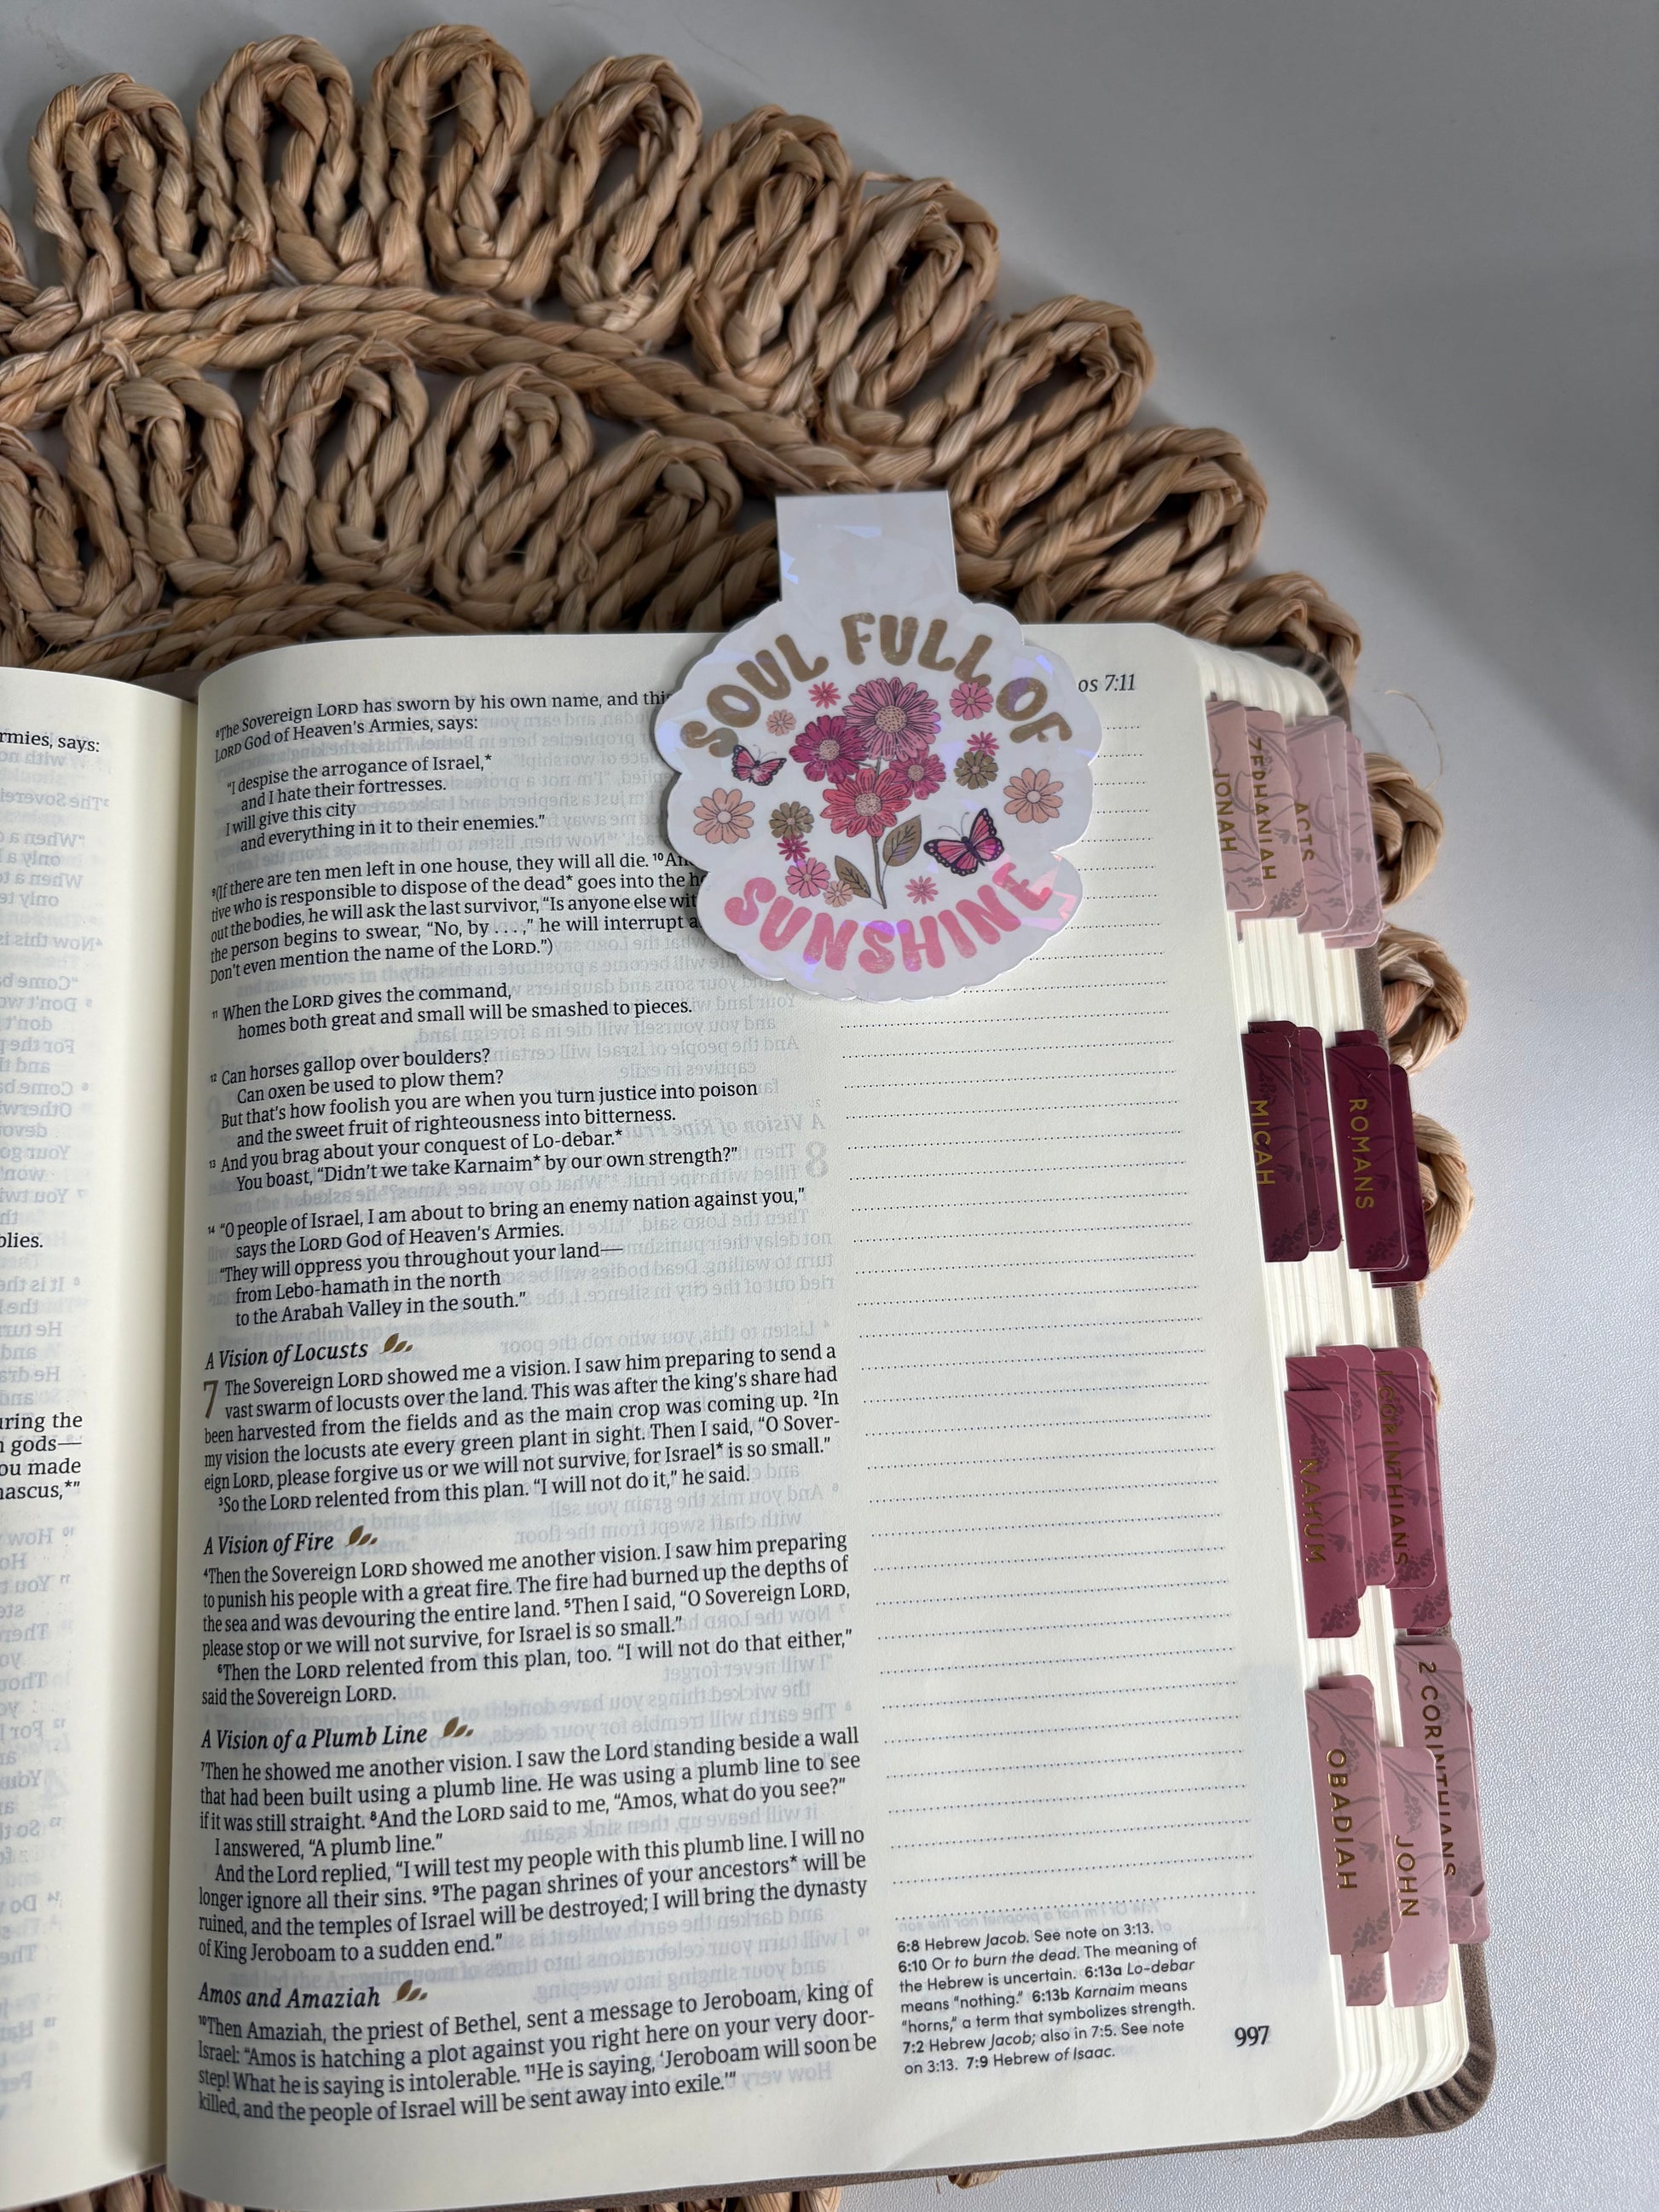 SOUL FULL OF
SUNSHINE
os 7:11
rmies, says:
blies.
uring the
gods—
ou made
nascus,*"
8The Sovereign LORD has sworn by his own name, and thi
LORD God of Heaven's Armies, says:
"I despise the arrogance of Israel,*
and I hate their fortresses.
I will give this city
and everything in it to their enemies."
9(If there are ten men left in one house, they will all die. 10An
tive who is responsible to dispose of the dead* goes into the h
out the bodies, he will ask the last survivor, "Is anyone else wit
the person begins to swear, "No, by . . . ," he will interrupt a
Don't even mention the name of the LORD.")
11 When the LORD gives the command,
homes both great and small will be smashed to pieces.
12 Can horses gallop over boulders?
Can oxen be used to plow them?
But that's how foolish you are when you turn justice into poison
and the sweet fruit of righteousness into bitterness.
13 And you brag about your conquest of Lo-debar.*
You boast, "Didn't we take Karnaim* by our own strength?"
14 "O people of Israel, I am about to bring an enemy nation against you,"
says the LORD God of Heaven's Armies.
"They will oppress you throughout your land—
from Lebo-hamath in the north
to the Arabah Valley in the south."
A Vision of Locusts
7 The Sovereign LORD showed me a vision. I saw him preparing to send a
vast swarm of locusts over the land. This was after the king's share had
been harvested from the fields and as the main crop was coming up. 2In
my vision the locusts ate every green plant in sight. Then I said, "O Sover-
eign LORD, please forgive us or we will not survive, for Israel* is so small."
3So the LORD relented from this plan. "I will not do it," he said.
A Vision of Fire
4Then the Sovereign LORD showed me another vision. I saw him preparing
to punish his people with a great fire. The fire had burned up the depths of
the sea and was devouring the entire land. 5Then I said, "O Sovereign LORD,
please stop or we will not survive, for Israel is so small."
6Then the LORD relented from this plan, too. "I will not do that either,"
said the Sovereign LORD.
A Vision of a Plumb Line
7Then he showed me another vision. I saw the Lord standing beside a wall
that had been built using a plumb line. He was using a plumb line to see
if it was still straight. 8And the LORD said to me, "Amos, what do you see?"
I answered, "A plumb line."
And the Lord replied, "I will test my people with this plumb line. I will no
longer ignore all their sins. 9The pagan shrines of your ancestors* will be
ruined, and the temples of Israel will be destroyed; I will bring the dynasty
of King Jeroboam to a sudden end."
Amos and Amaziah
10Then Amaziah, the priest of Bethel, sent a message to Jeroboam, king of
Israel: "Amos is hatching a plot against you right here on your very door-
step! What he is saying is intolerable. 11He is saying, 'Jeroboam will soon be
killed, and the people of Israel will be sent away into exile.'"
6:8 Hebrew Jacob. See note on 3:13.
6:10 Or to burn the dead. The meaning of
the Hebrew is uncertain. 6:13a Lo-debar
means "nothing." 6:13b Karnaim means
"horns," a term that symbolizes strength.
7:2 Hebrew Jacob; also in 7:5. See note
on 3:13. 7:9 Hebrew of Isaac.
997
JONAH
ZEPHANIAH
ACTS
MICAH
ROMANS
NAHUM
1 CORINTHIANS
OBADIAH
JOHN
2 CORINTHIANS